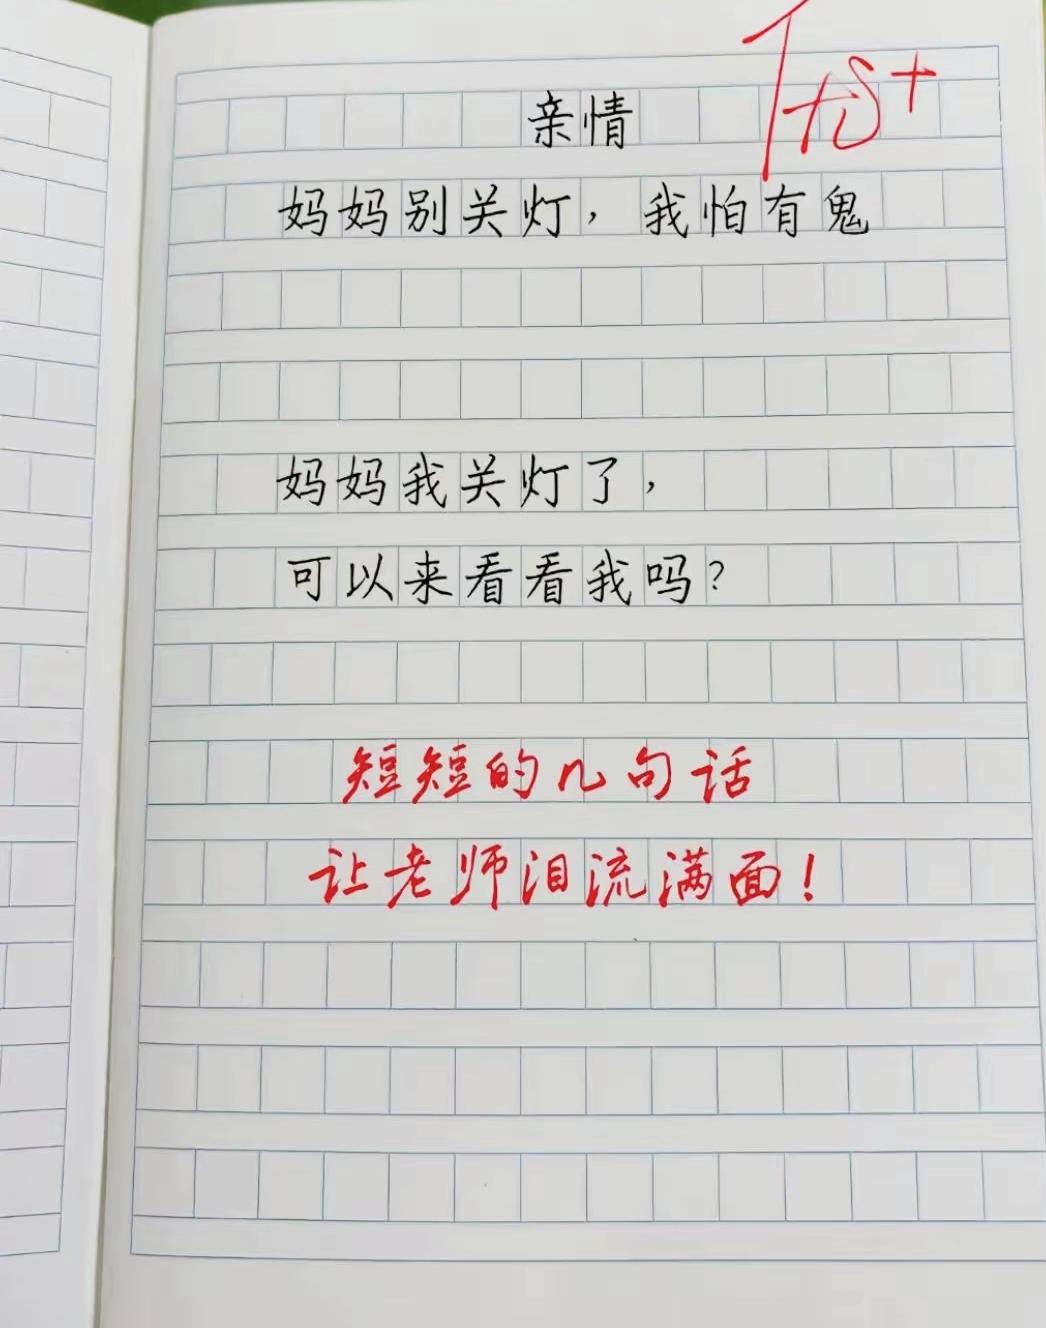 优+
亲情
妈妈别关灯，我怕有鬼
妈妈我关灯了，
可以来看看我吗？
短短的几句话
让老师泪流满面！